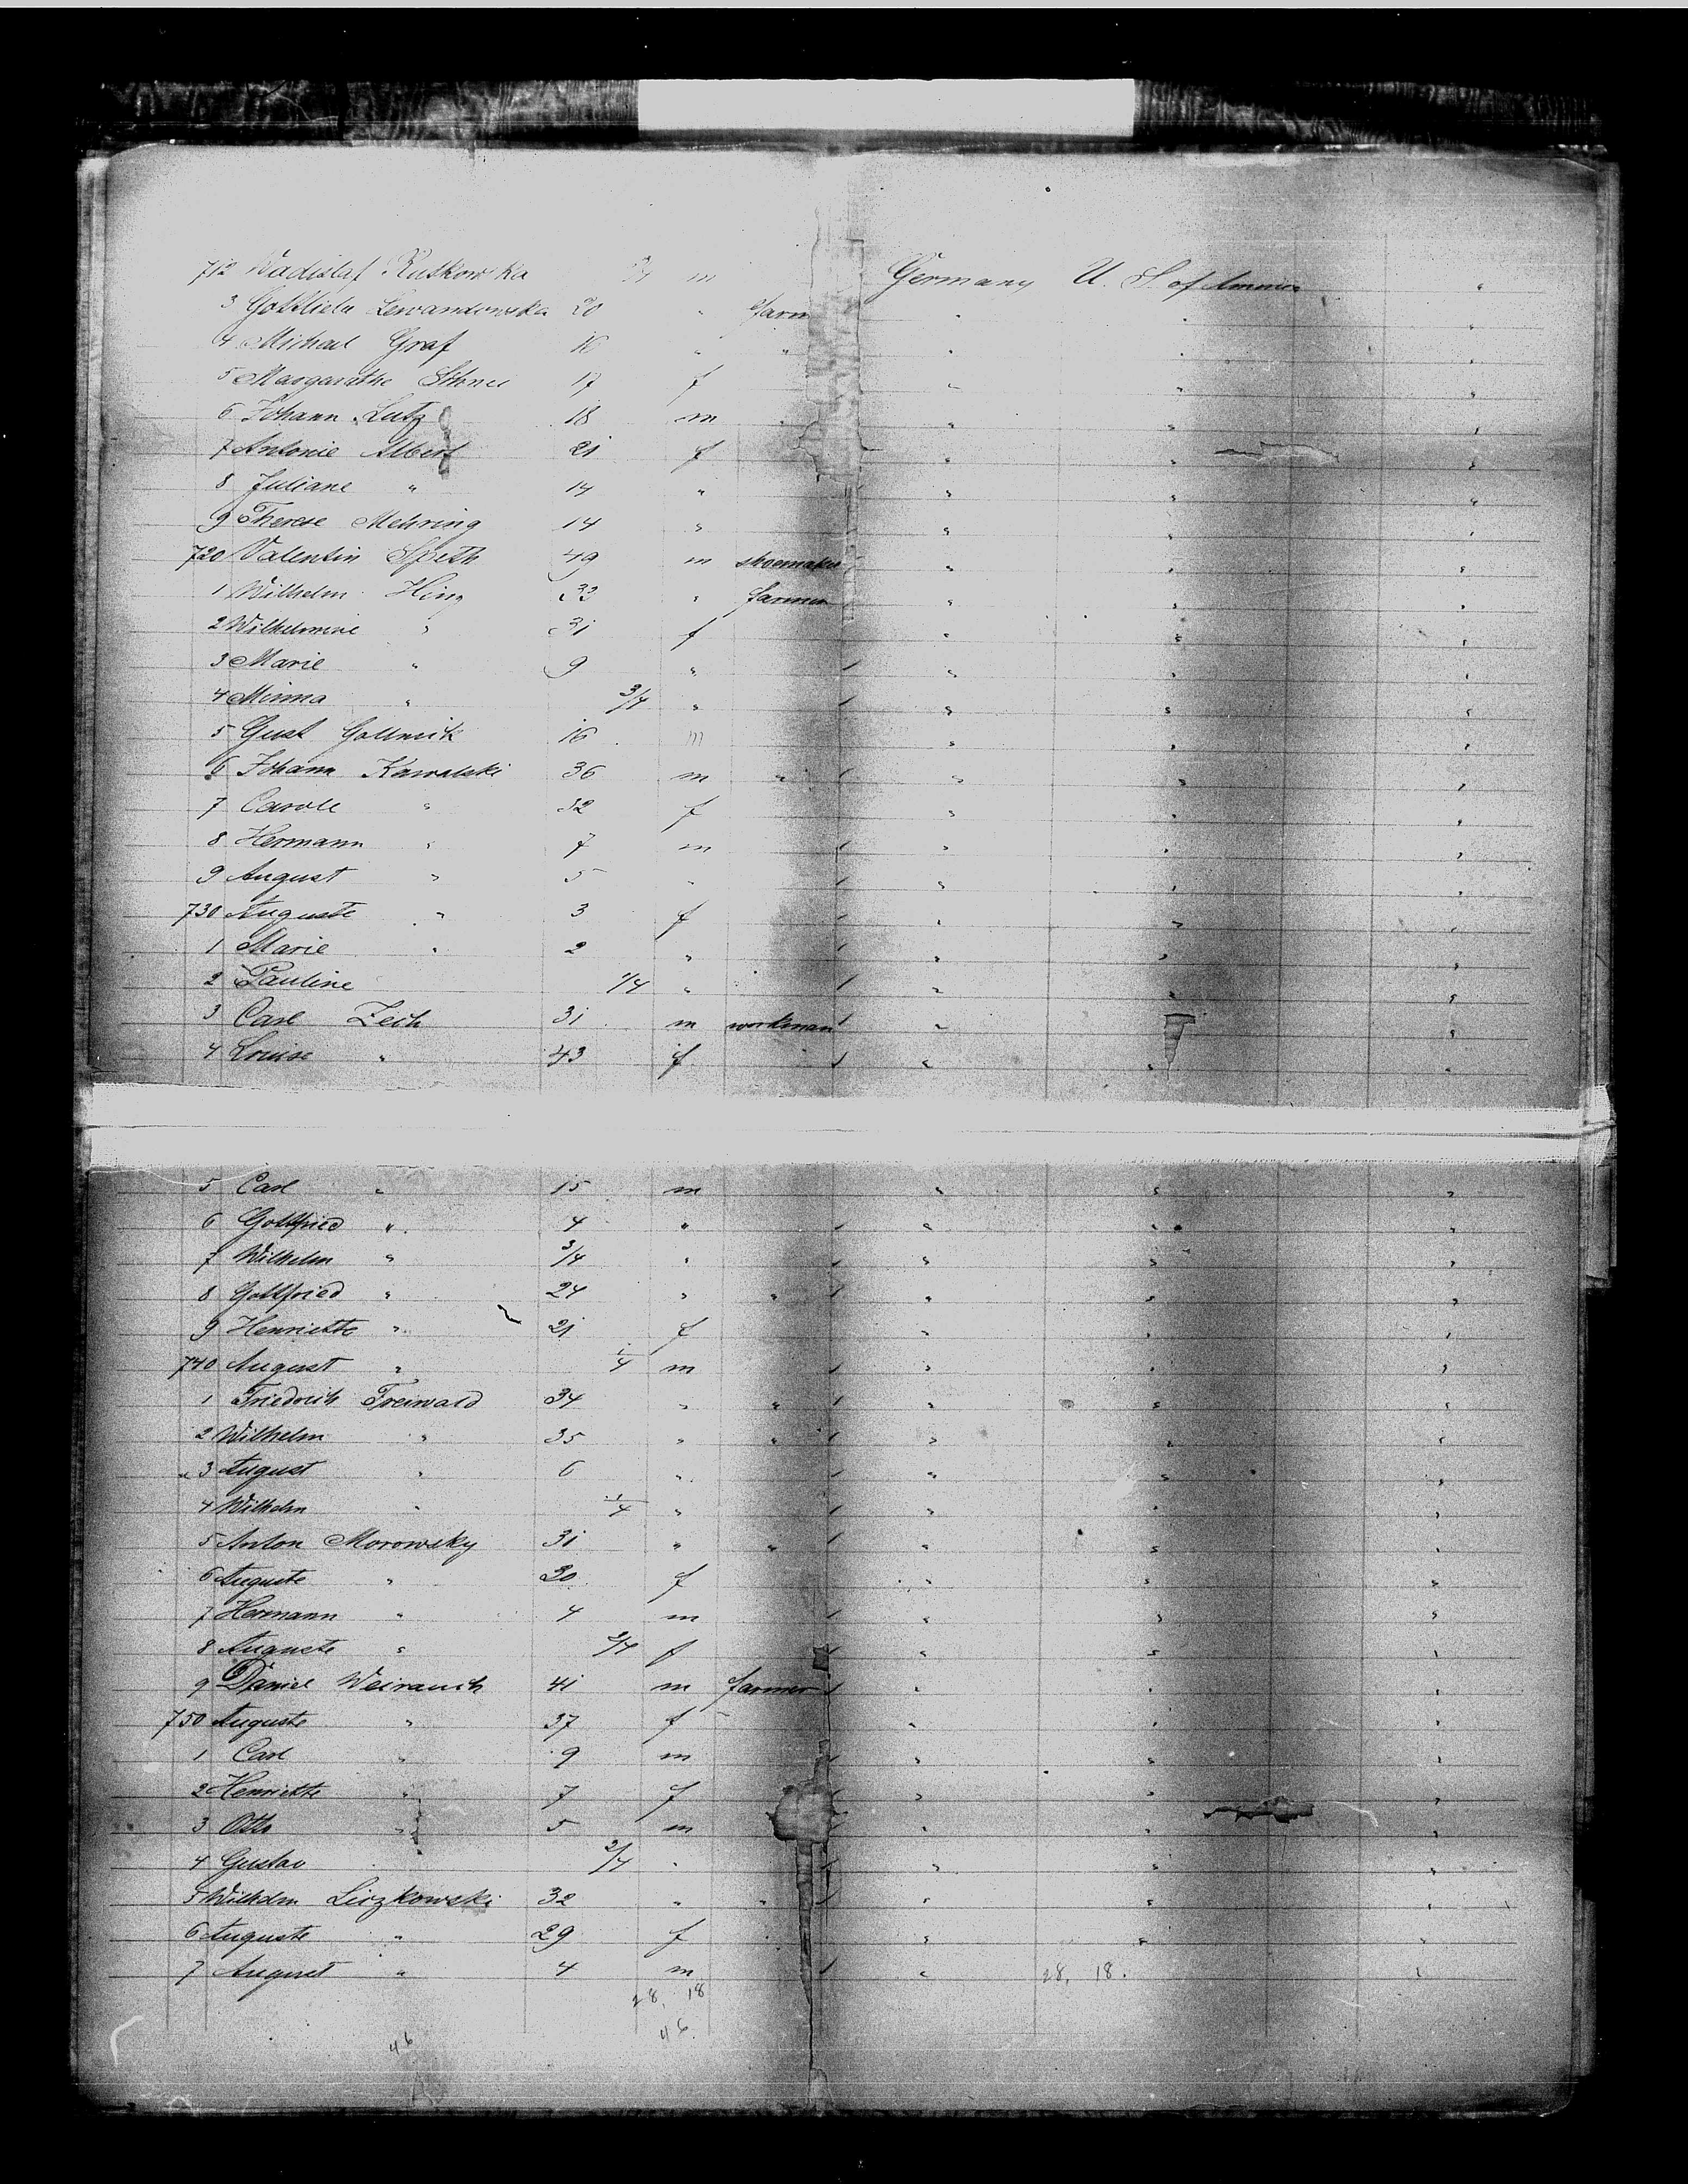 712 Wadislaf Kutkowska m Germany U. S. of America "
3 Gottlieb Lewandowska 20 " farm " " "
4 Michael Graf 16 " " " " "
5 Margarethe 17 f " " "
6 Johann Lutz 18 m " " " "
7 Antonie Albert 21 f " " "
8 Juliane " 14 " " " "
9 Therese Mehring 14 " " " "
720 Valentin Speth 49 m shoemaker " " "
1 Wilhelm Hing 33 " farmer " " "
2 Wilhelmine " 31 f " " "
3 Marie " 9 " " " "
4 Minna " 3/4 " " " "
5 Gust Gollnick 16 m " " "
6 Johann Kawalski 36 m " " " "
7 Carole " 32 f " " "
8 Hermann " 7 m " " "
9 August " 5 " " " "
730 Auguste " 3 f " " "
1 Marie " 2 " " " "
2 Pauline 1/4 " " " "
3 Carl Zech 31 m workman " " "
4 Louise " 43 f " " "
5 Carl " 15 m " " "
6 Gottfried " 4 " " " "
7 Wilhelm " 3/4 " " " "
8 Gottfried " 24 " " " " "
9 Henriette " 21 f " " "
740 August " 1/4 m " " "
1 Friedrich Freiwald 34 " " " " "
2 Wilhelm " 35 " " " " "
3 August " 6 " " " "
4 Wilhelm " 1/4 " " " "
5 Anton Morowsky 31 " " " " "
6 Auguste " 30 f " " "
7 Hermann " 4 m " " "
8 Auguste " 3/4 f " " "
9 Daniel Weirauch 41 m farmer " " "
750 Auguste " 37 f " " "
1 Carl " 9 m " " "
2 Henriette " 7 f " " "
3 Otto " 5 m " " "
4 Gustav 2/4 " " " "
5 Wilhelm Liezkowski 32 " " " " "
6 Auguste " 29 f " " "
7 August " 4 m " 28, 18. "
28, 18
46 46